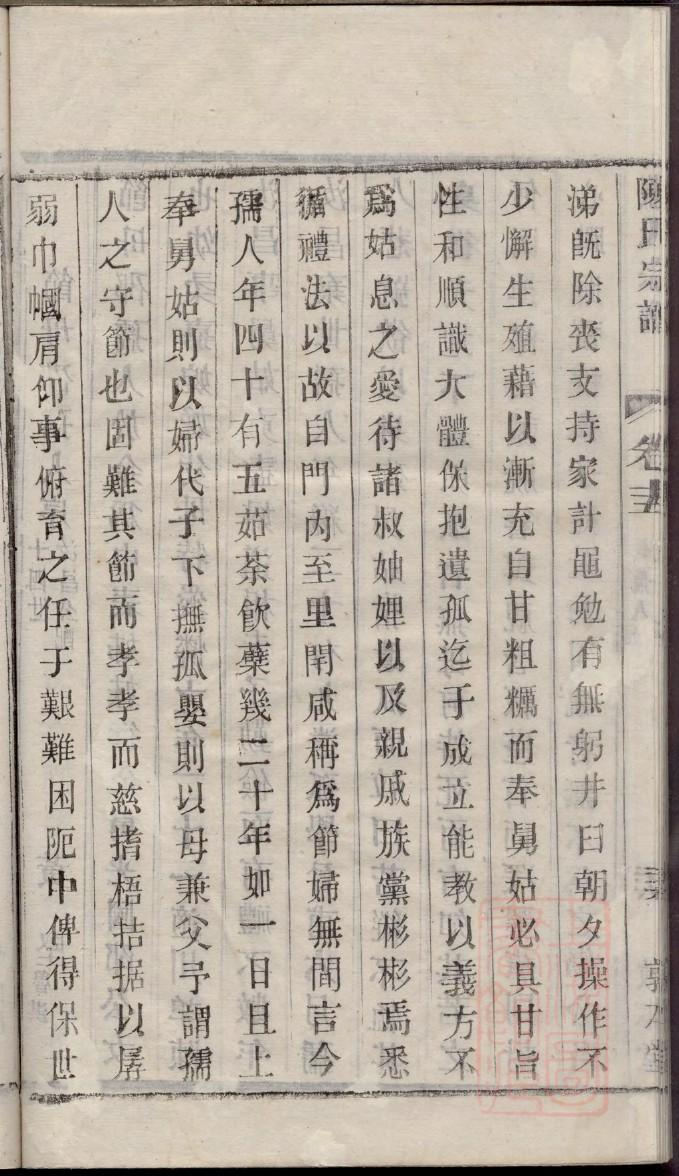 陳氏宗譜 卷
涕旣除喪支持家計黽勉有無躬井臼朝夕操作不
少懈生殖藉以漸充自甘粗糲而奉舅姑必具甘旨
性和順識大體保抱遺孤迄于成立能教以義方不
爲姑息之愛待諸叔妯娌以及親戚族黨彬彬焉悉
循禮法以故自門內至里閈咸稱爲節婦無間言今
孺人年四十有五茹荼飮蘗幾二十年如一日且上
奉舅姑則以婦代子下撫孤嬰則以母兼父予謂孺
人之守節也固難其節而孝孝而慈揩梧拮据以孱
弱巾幗肩仰事俯育之任于艱難困阨中俾得保世